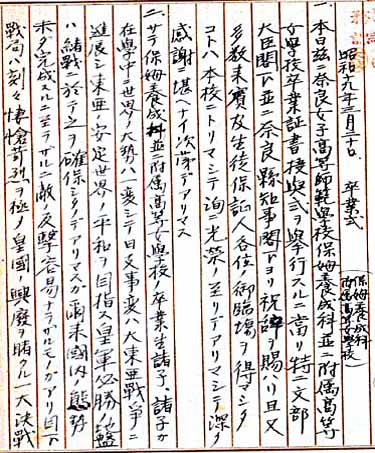 昭和十九年三月二十日　卒業式（保姆養成科
附属高等女學校）
一、本日茲ニ奈良女子高等師範學校保姆養成科並ニ附属高等
女學校卒業証書授與式ヲ擧行スルニ當リ特ニ文部
大臣閣下並ニ奈良縣知事閣下ヨリ祝辞ヲ賜ハリ且又
多數来賓及生徒保証人各位ノ御臨場ヲ得マシタ
コトハ本校ニトリマシテ洵ニ光榮ノ至リデアリマシテ深ク
感謝ニ堪ヘナイ次第デアリマス
二、サテ保姆養成科並ニ附属高等女學校ノ卒業生諸子、諸子ガ
在學中ニ世界ノ大勢ハ一変シテ日支事変ハ大東亜戰争ニ
進展シ東亜ノ安定世界ノ平和ヲ目指ス皇軍必勝ノ地盤
ハ緒戰ニ於テ之ヲ確保シタノデアリマスガ爾来國内ノ態勢
未ダ完成スルニ至ラザルニ敵ノ反撃容易ナラザルモノガアリ目下
戰局ハ刻々悽愴苛烈ヲ極メ皇國ノ興廢ヲ賭クル一大決戰